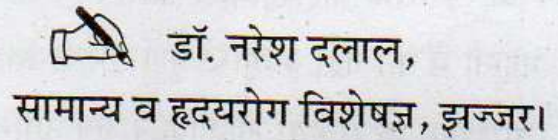 डॉ. नरेश दलाल,
सामान्य व हृदयरोग विशेषज्ञ, झज्जर।